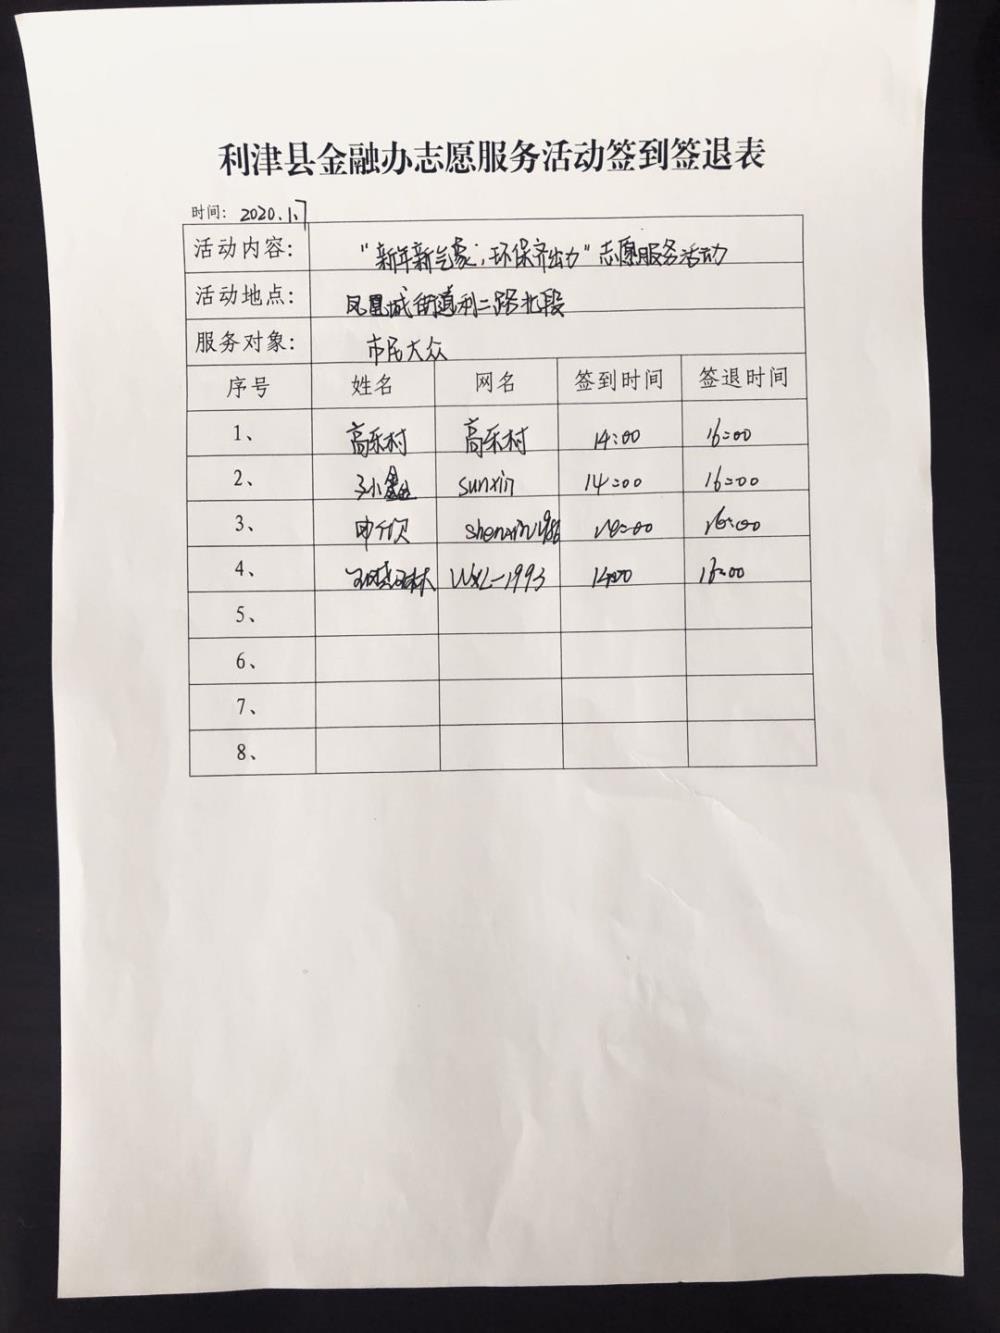 利津县金融办志愿服务活动签到签退表
时间: 2020.1.7
活动内容: “新年新气象，环保齐出力”志愿服务活动
活动地点: 凤凰城街道利二路北段
服务对象: 市民大众
序号 姓名 网名 签到时间 签退时间
1、 高乐村 高乐村 14:00 16:00
2、 孙鑫 sunxin 14:00 16:00
3、 16:00
4、 WXL-1993 14:00 16:00
5、
6、
7、
8、